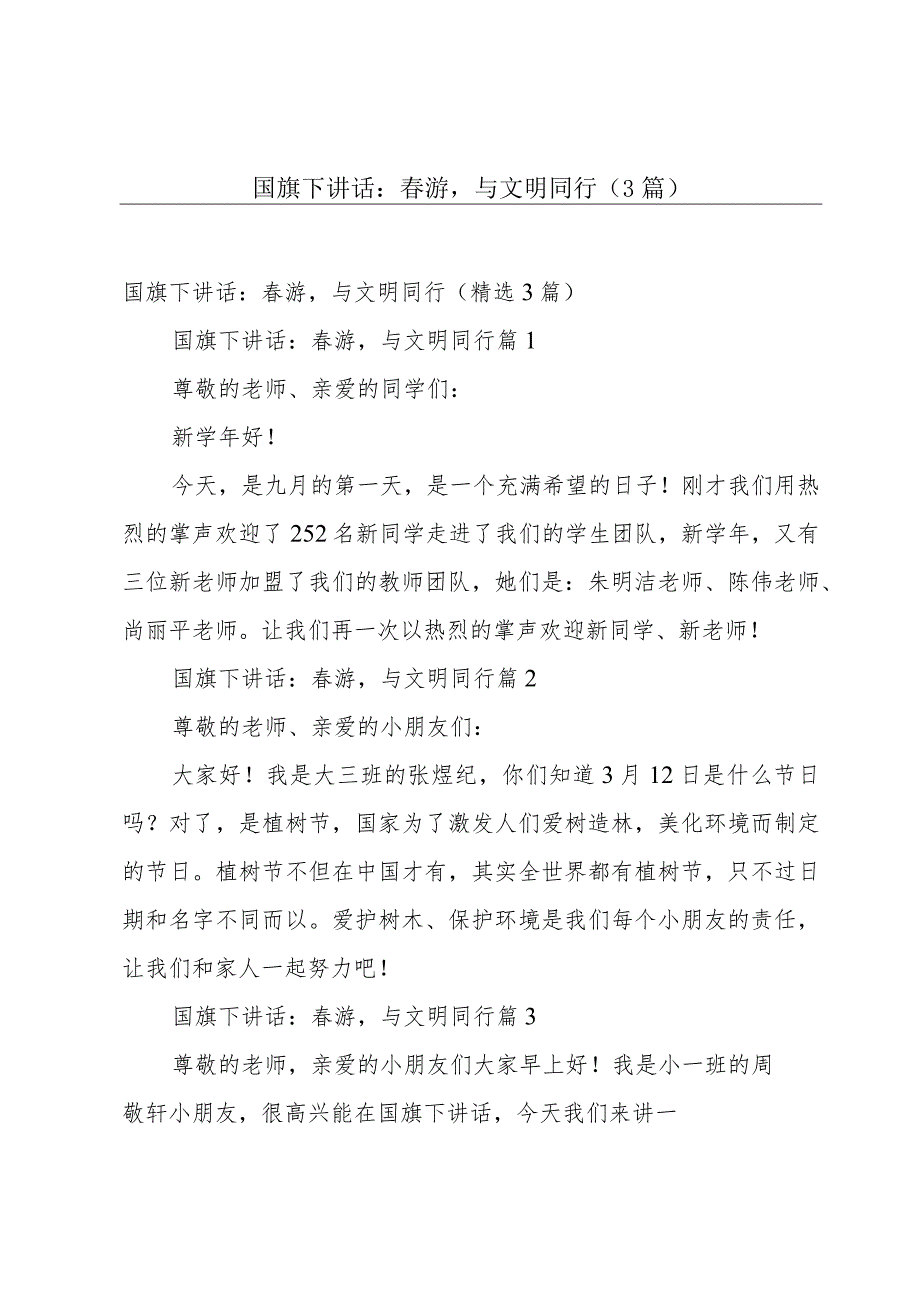 国旗下讲话：春游，与文明同行（3篇）
国旗下讲话：春游，与文明同行（精选3篇）
国旗下讲话：春游，与文明同行篇1
尊敬的老师、亲爱的同学们：
新学年好！
今天，是九月的第一天，是一个充满希望的日子！刚才我们用热
烈的掌声欢迎了252名新同学走进了我们的学生团队，新学年，又有
三位新老师加盟了我们的教师团队，她们是：朱明洁老师、陈伟老师、
尚丽平老师。让我们再一次以热烈的掌声欢迎新同学、新老师！
国旗下讲话：春游，与文明同行篇2
尊敬的老师、亲爱的小朋友们：
大家好！我是大三班的张煜纪，你们知道3月12日是什么节日
吗？对了，是植树节，国家为了激发人们爱树造林，美化环境而制定
的节日。植树节不但在中国才有，其实全世界都有植树节，只不过日
期和名字不同而以。爱护树木、保护环境是我们每个小朋友的责任，
让我们和家人一起努力吧！
国旗下讲话：春游，与文明同行篇3
尊敬的老师，亲爱的小朋友们大家早上好！我是小一班的周
敬轩小朋友，很高兴能在国旗下讲话，今天我们来讲一